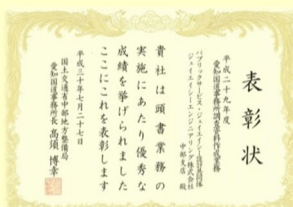 表彰状
平成二十九年度
愛知国道事務所調査資料作成業務
パブリックサービス・ジェイエイシー設計共同体
ジェイエイシーエンジニアリング株式会社
中部支店 殿
貴社は頭書業務の
実施にあたり優秀な
成績を挙げられました
ここにこれを表彰します
平成三十年七月二十七日
国土交通省中部地方整備局
愛知国道事務所長 高須博幸